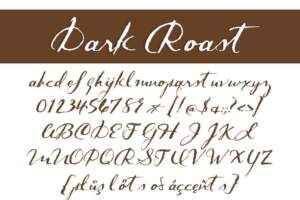 Dark Roast
abcd ef ghijkl mnopqrst uvwxyz
0123456789 * [!@$&;:?<>]
ABCDEFGH IJKL
MNOPQRSTUVWXYZ
{plüs löts òš áççeñts}